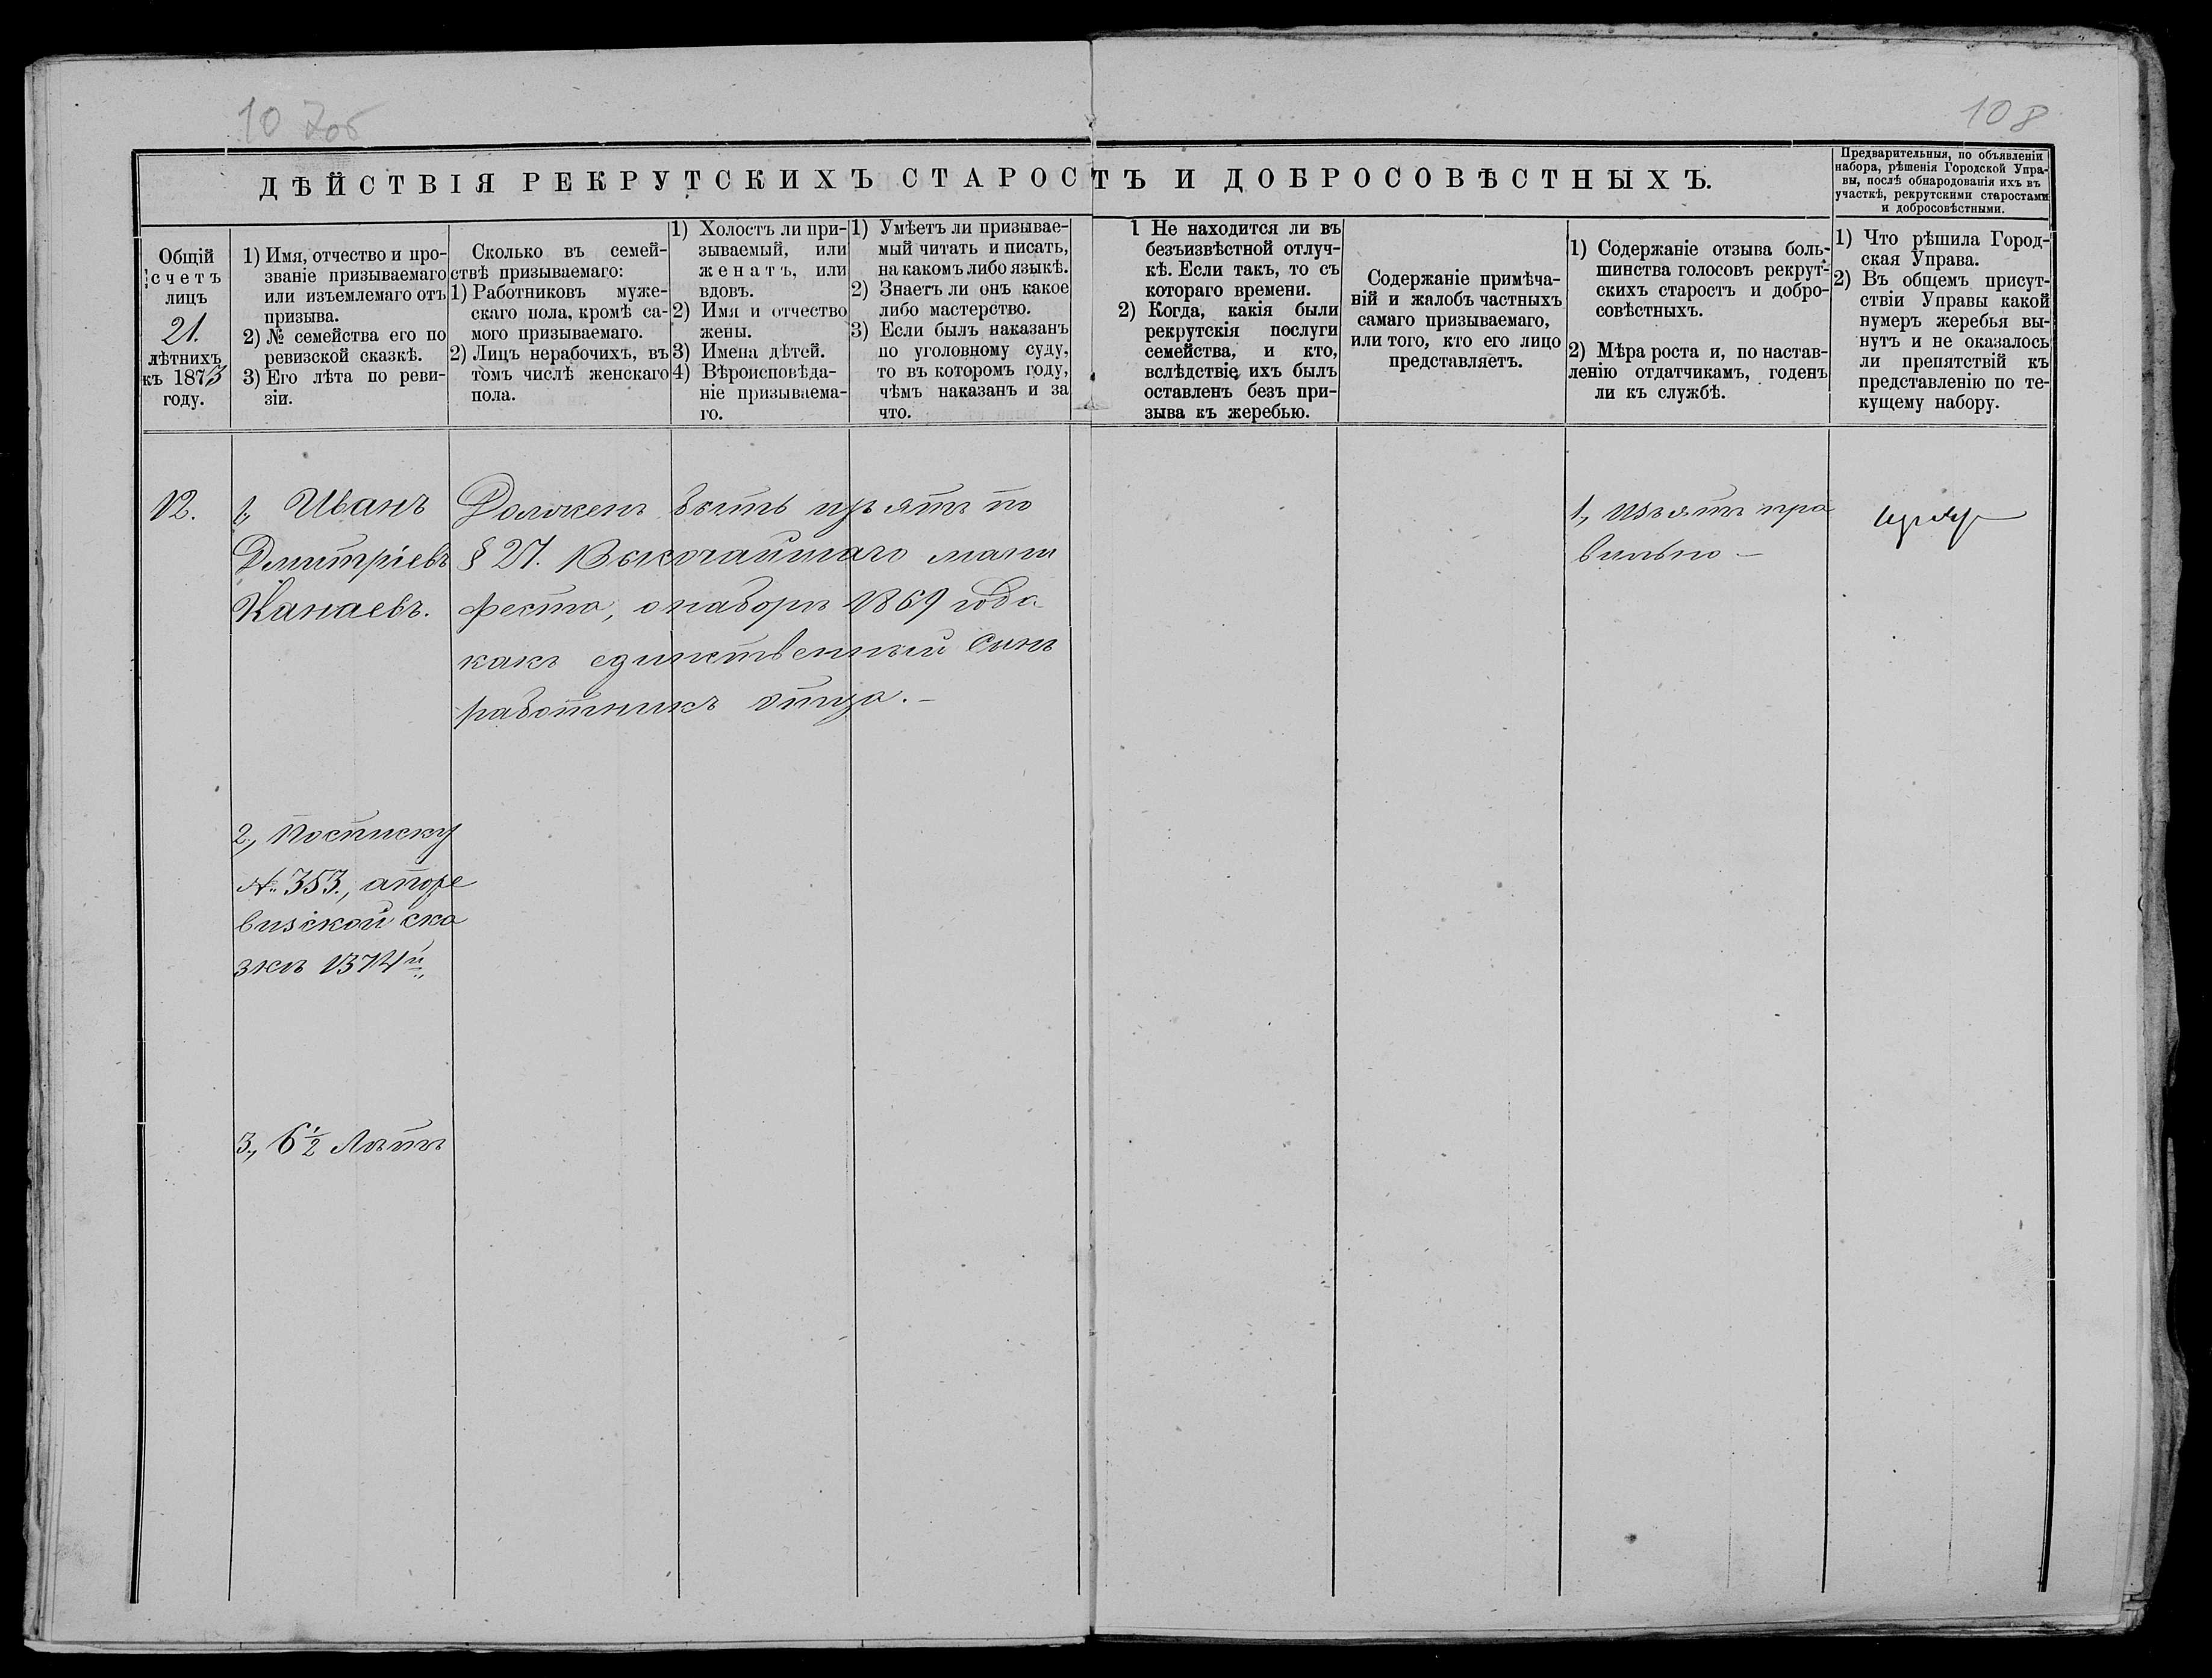 107об
108
ДѢЙСТВІЯ РЕКРУТСКИХЪ СТАРОСТЪ И ДОБРОСОВѢСТНЫХЪ.
Предварительныя, по объявленіи
набора, рѣшенія Городской Упра-
вы, послѣ обнародованія ихъ въ
участкѣ, рекрутскими старостами
и добросовѣстными.
Общій
счетъ
лицъ
21.
лѣтнихъ
къ 1873
году.
1) Имя, отчество и про-
званіе призываемаго
или изъемлемаго отъ
призыва.
2) № семейства его по
ревизской сказкѣ.
3) Его лѣта по реви-
зіи.
Сколько въ семей-
ствѣ призываемаго:
1) Работниковъ муже-
скаго пола, кромѣ са-
мого призываемаго.
2) Лицъ нерабочихъ, въ
томъ числѣ женскаго
пола.
1) Холостъ ли при-
зываемый, или
женатъ, или
вдовъ.
2) Имя и отчество
жены.
3) Имена дѣтей.
4) Вѣроисповѣда-
ніе призываема-
го.
1) Умѣетъ ли призывае-
мый читать и писать,
на какомъ либо языкѣ.
2) Знаетъ ли онъ какое
либо мастерство.
3) Если былъ наказанъ
по уголовному суду,
то въ которомъ году,
чѣмъ наказанъ и за
что.
1 Не находится ли въ
безъизвѣстной отлуч-
кѣ. Если такъ, то съ
котораго времени.
2) Когда, какія были
рекрутскія послуги
семейства, и кто,
вслѣдствіе ихъ былъ
оставленъ безъ при-
зыва къ жеребью.
Содержаніе примѣча-
ній и жалобъ частныхъ
самаго призываемаго,
или того, кто его лицо
представляетъ.
1) Содержаніе отзыва боль-
шинства голосовъ рекрут-
скихъ старостъ и добро-
совѣстныхъ.
2) Мѣра роста и, по настав-
ленію отдатчикамъ, годенъ
ли къ службѣ.
1) Что рѣшила Город-
ская Управа.
2) Въ общемъ присут-
ствіи Управы какой
нумеръ жеребья вы-
нутъ и не оказалось
ли препятствій къ
представленію по те-
кущему набору.
12.
1, Иванъ
Дмитріевъ
Канаевъ.
Долженъ быть изъятъ по
§ 27. Высочайшаго мани
феста, о наборѣ 1869 года
какъ единственный сынъ
работникъ отца. –
1, Изъятъ пра
вильно –
2, По списку
№ 353., а по ре
визской ска
зкѣ 1374й
3, 6 1/2 лѣтъ